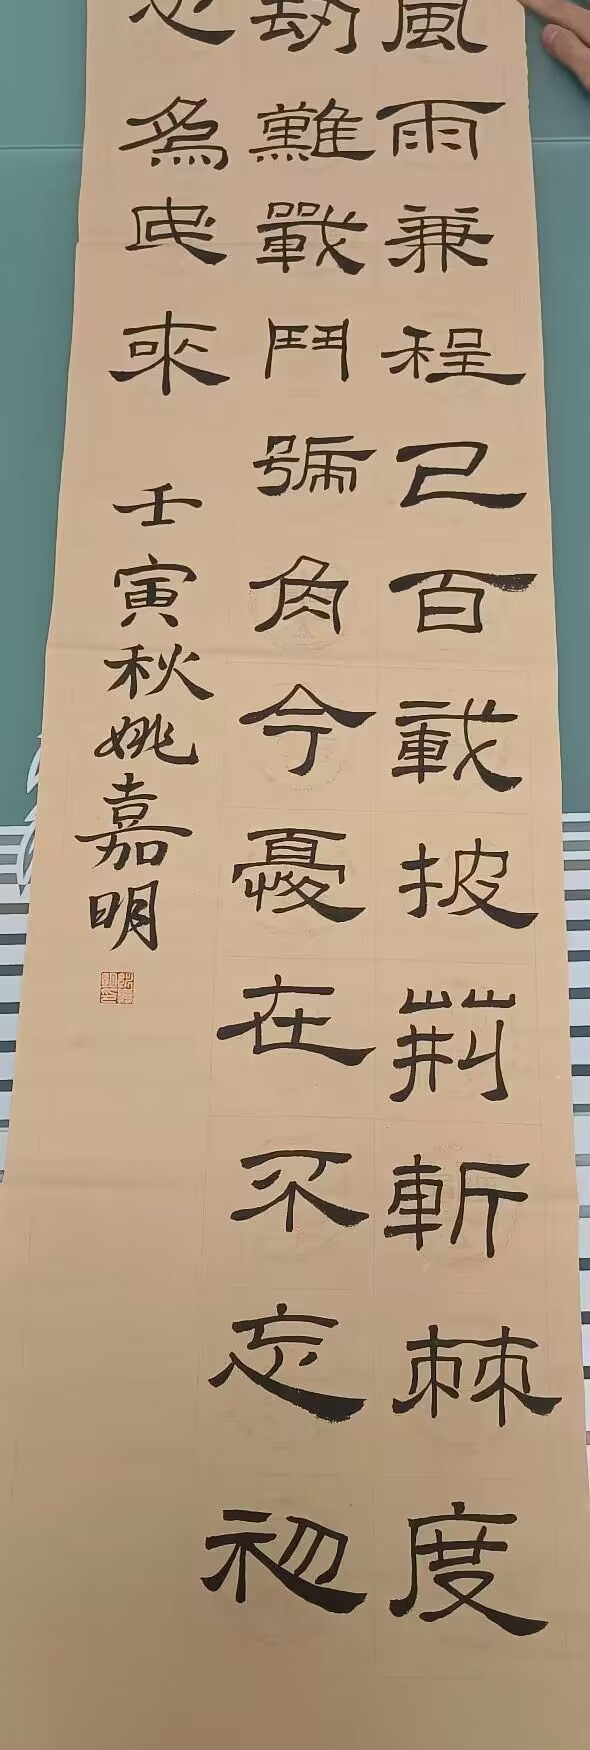 風雨兼程已百載披荊斬棘度
劫難戰鬥號角今憂在不忘初
心為民來
壬寅秋姚嘉明